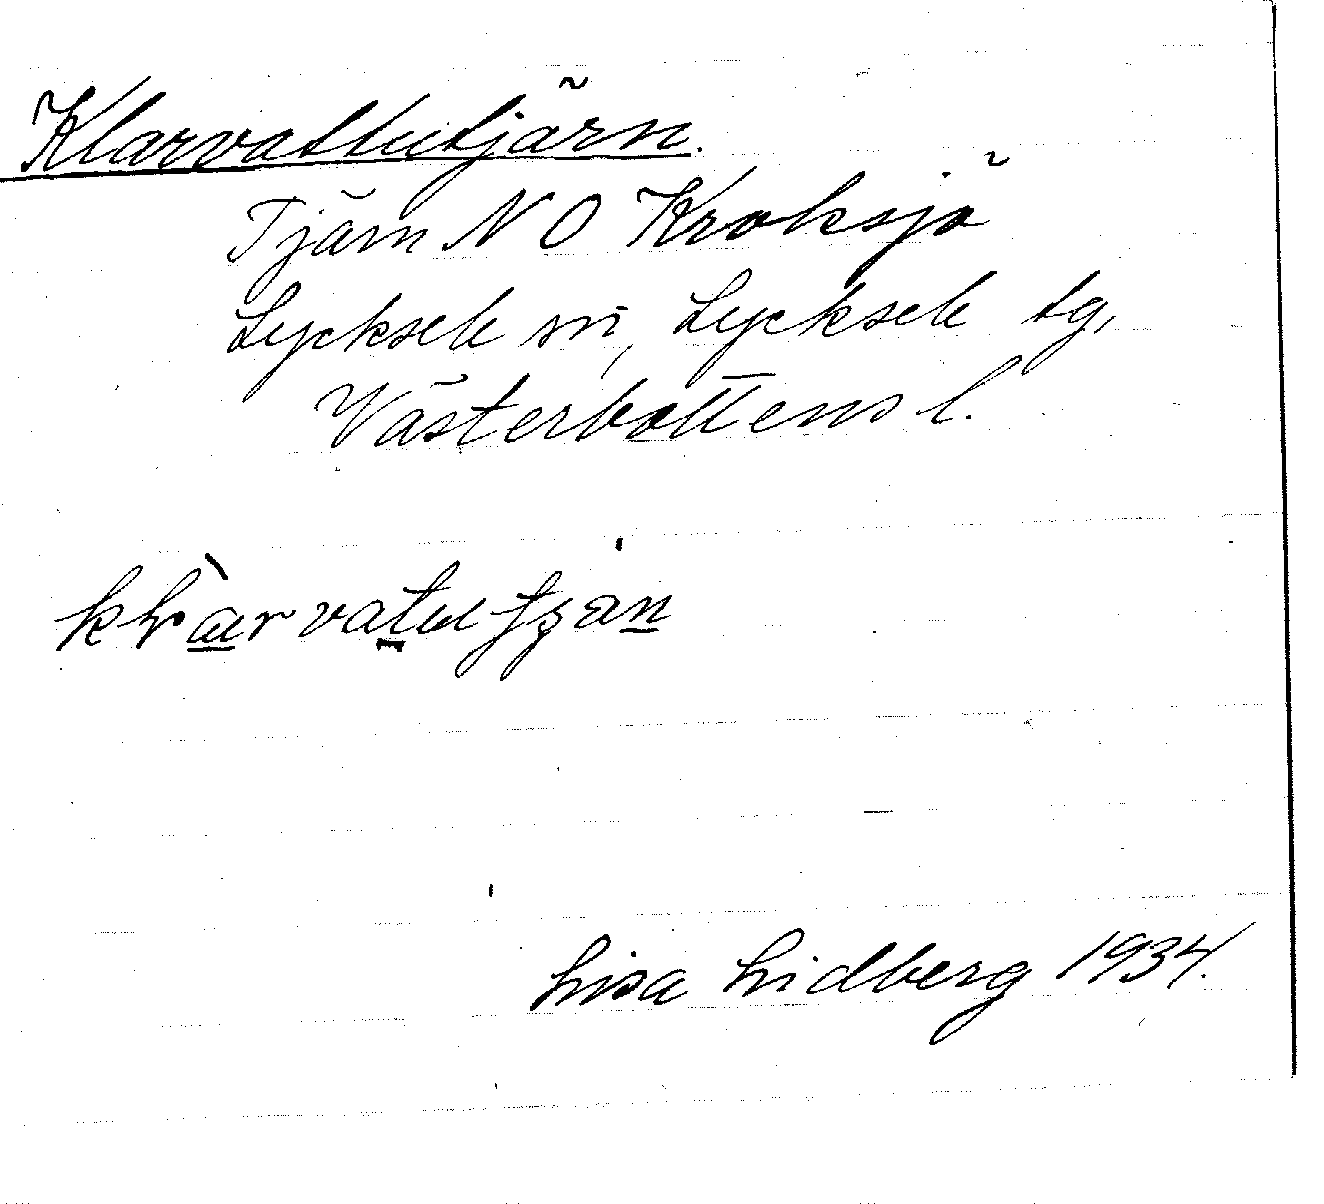 Klarvattutjärn.
Tjärn NO Kroksjö
Lycksele sn, Lycksele tg,
Västerbottens l.
Lisa Lidberg 1934.